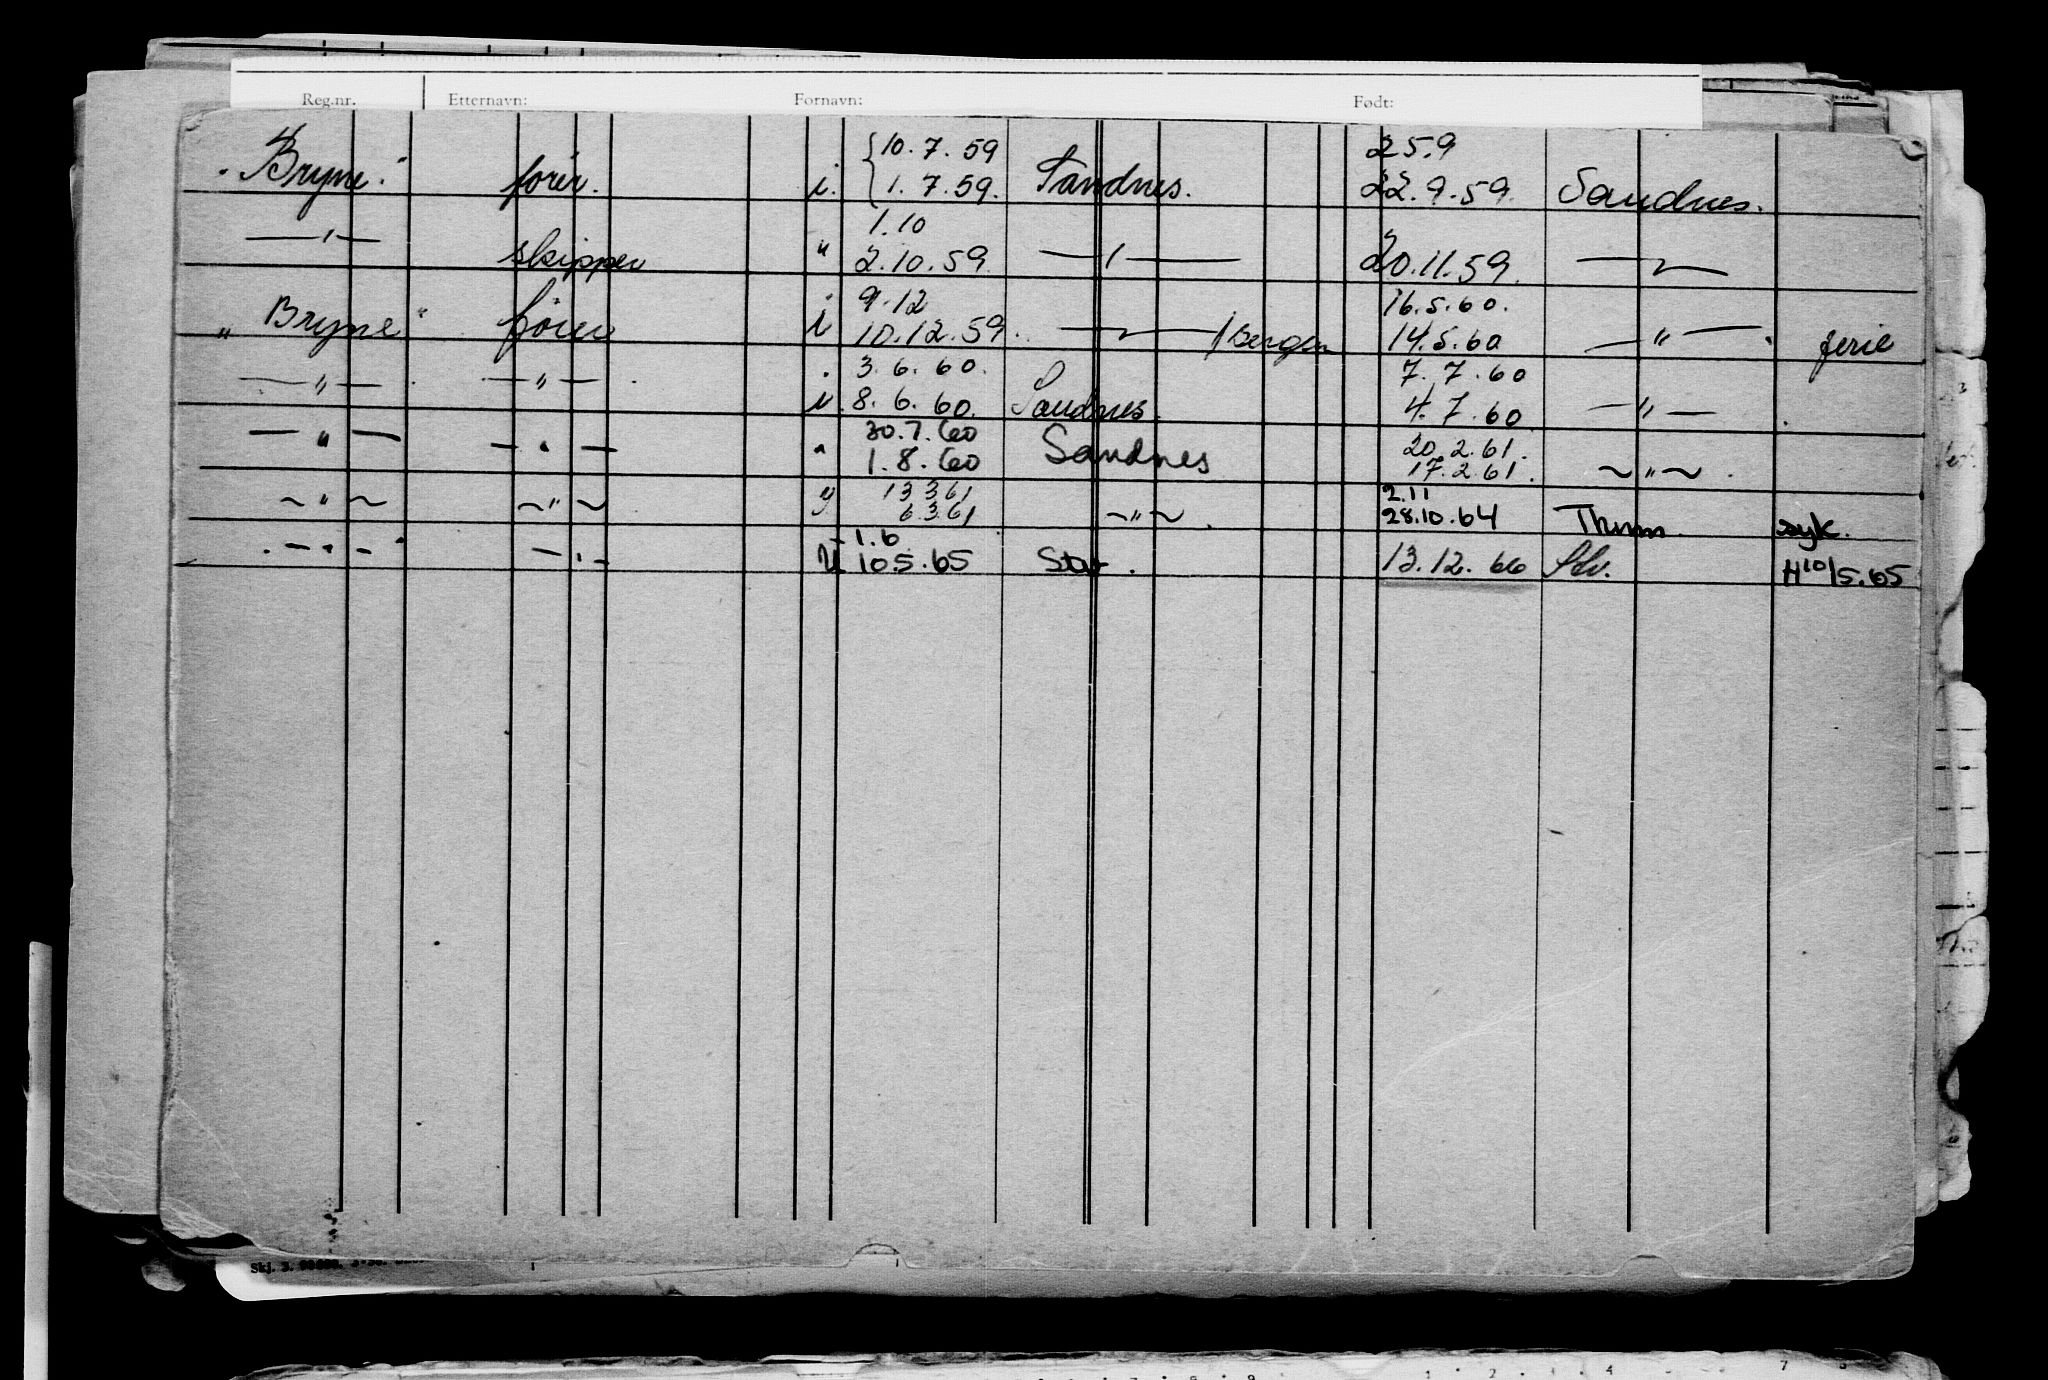 Reg.nr. Etternavn: Fornavn: Født:
10.7.59 25.9
"Bryne" fører. i. { 1.7.59. Sandnes. 22.9.59. Sandnes.
1.10
—"— skipper " 2.10.59. —"— 20.11.59. —"—
9.12 16.5.60.
"Bryne" fører i 10.12.59. —"— / Bergen 14.5.60 —"— . ferie
3.6.60. 7.7.60
—"— . —"— . i. 8.6.60. Sandnes. 4.7.60 —"— .
30.7.60 20.2.61.
—"— —"— " 1.8.60 Sandnes 17.2.61. ~"~ .
13.3.61 2.11
~"~ ~"~ y 6.3.61 ~"~ . 28.10.64 Thmm. syk.
1.6
—"— —"— 10.5.65 Stv. 13.12.66 Stv. H10/5.65
Skj. 3.